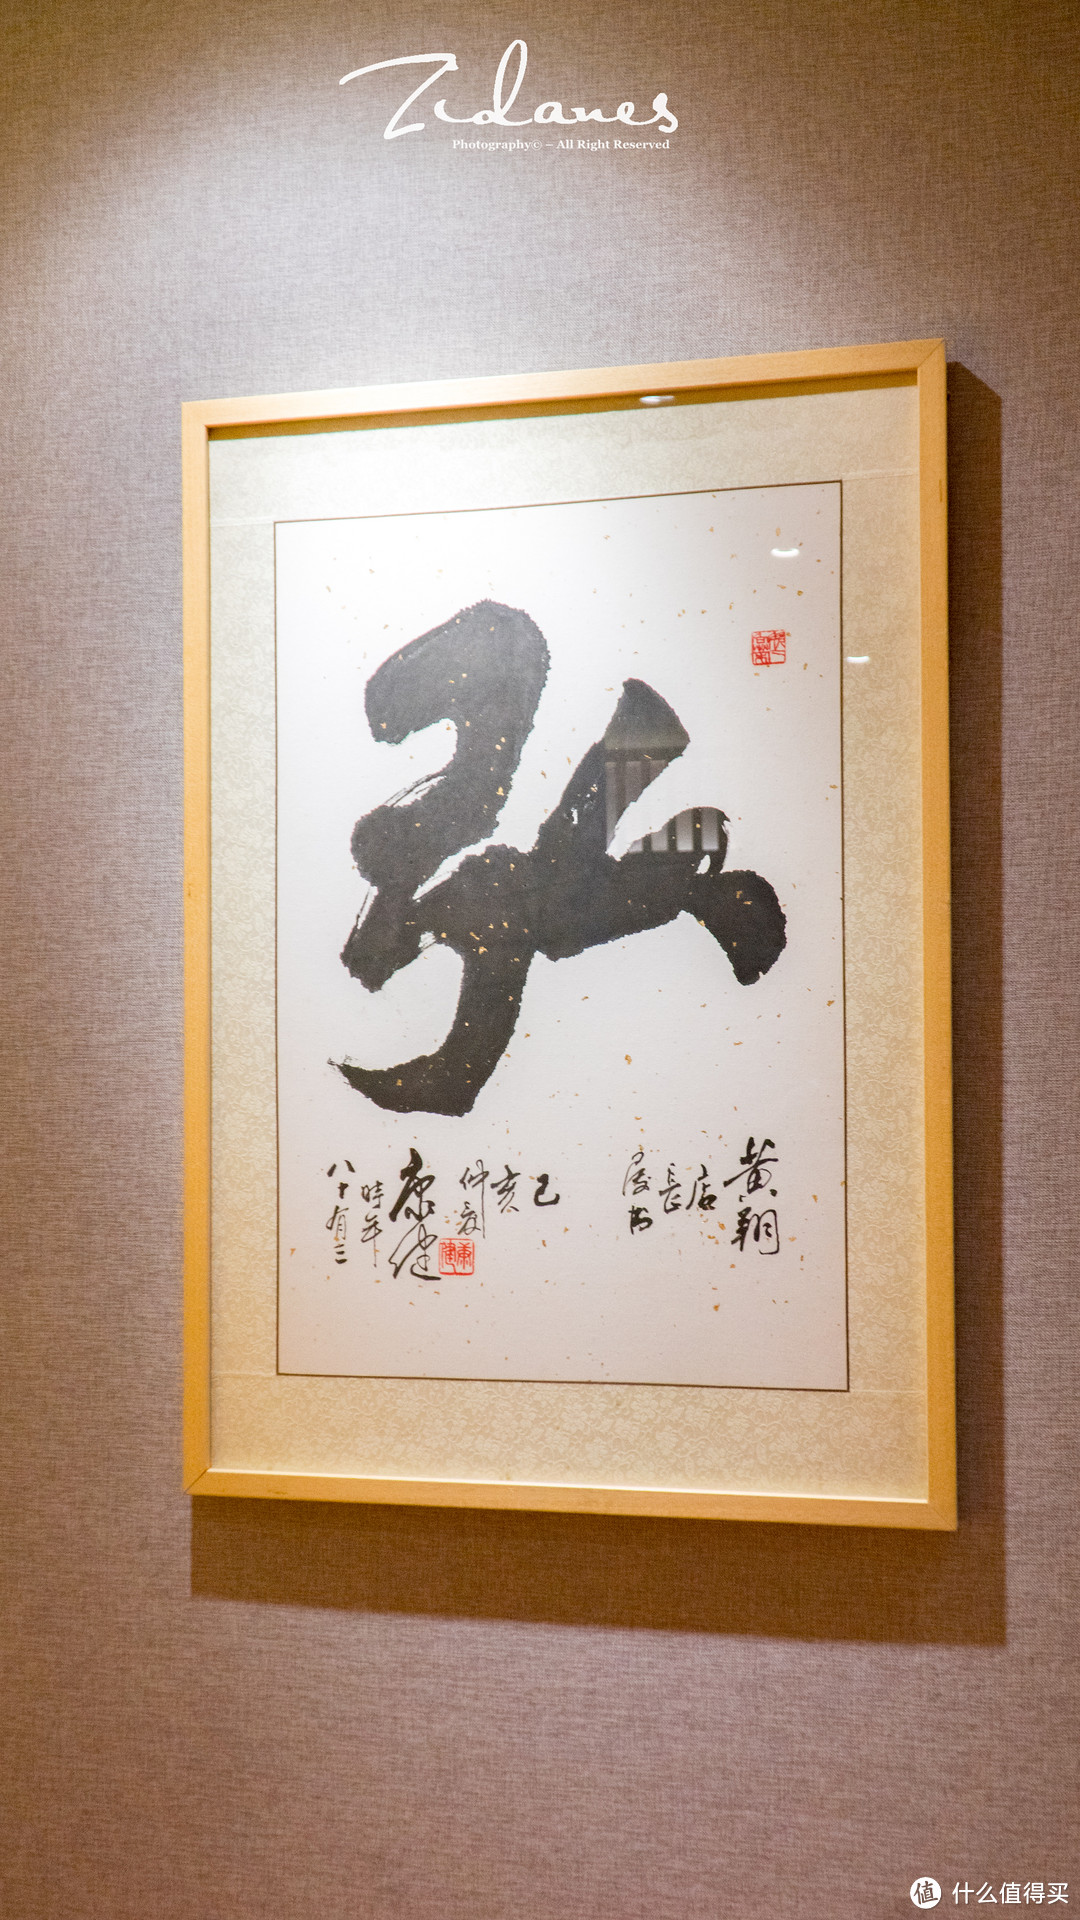 Zidanes
Photography© – All Right Reserved
弘
黄翔
店長
己亥
仲夏
康健
時年
八十有三
值 什么值得买